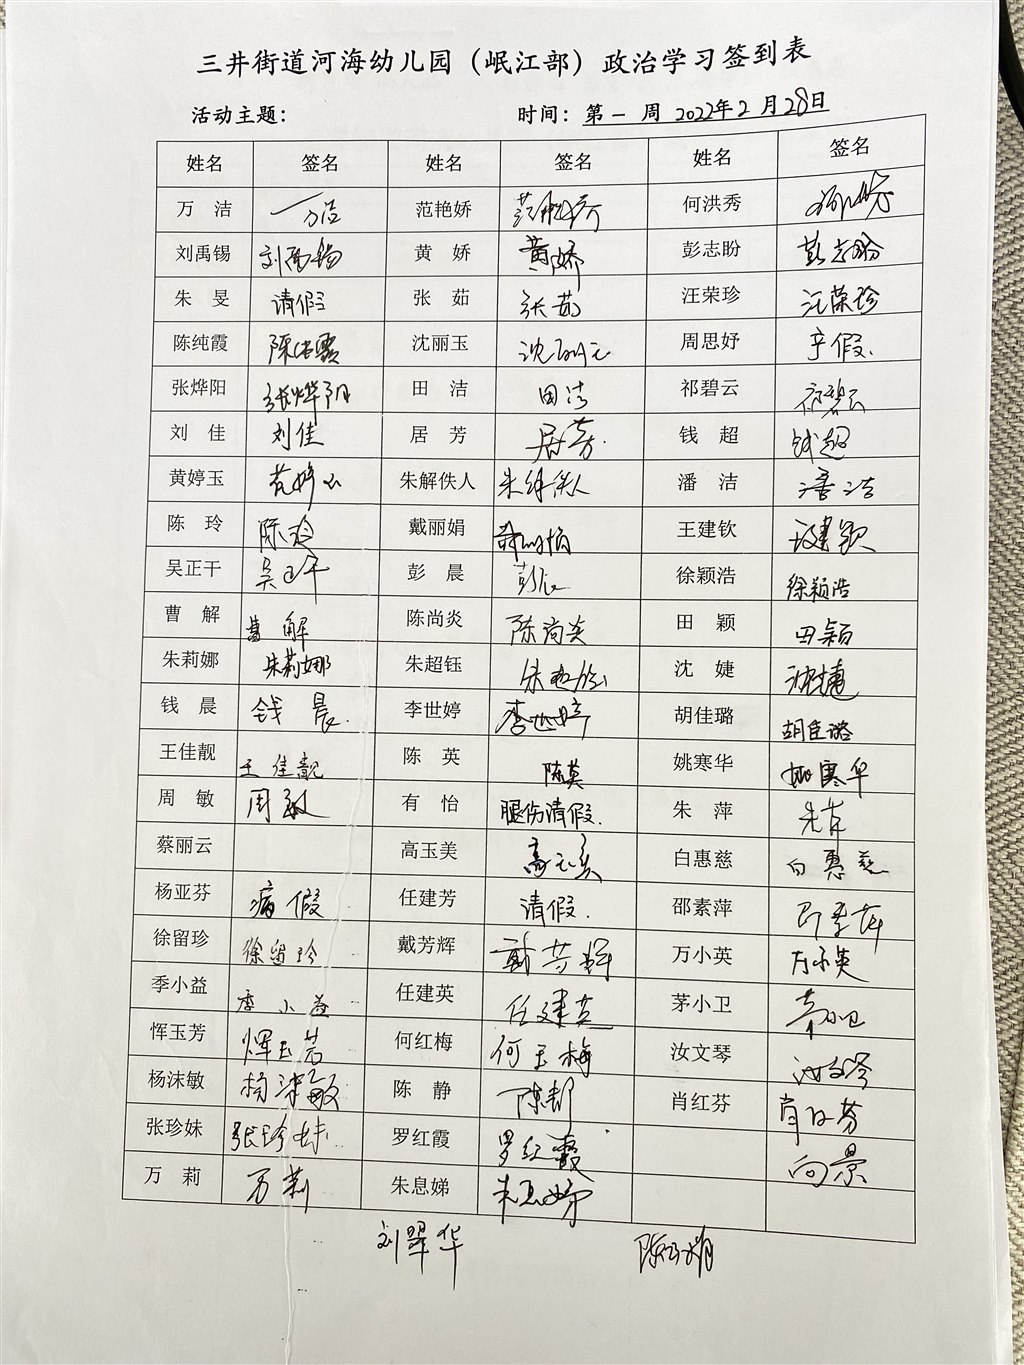 三井街道河海幼儿园（岷江部）政治学习签到表
活动主题： 时间：第一周 2022年2月28日
姓名 签名 姓名 签名 姓名 签名
万洁 万洁 范艳娇 范艳娇 何洪秀
刘禹锡 刘禹锡 黄娇 黄娇 彭志盼 彭志盼
朱旻 请假 张茹 张茹 汪荣珍 汪荣珍
陈纯霞 陈纯霞 沈丽玉 沈丽玉 周思妤 产假.
张烨阳 张烨阳 田洁 田洁 祁碧云 祁碧云
刘佳 刘佳 居芳 居芳. 钱超 钱超
黄婷玉 黄婷玉 朱解佚人 朱解佚人 潘洁 潘洁
陈玲 陈玲 戴丽娟 戴丽娟 王建钦
吴正干 吴正干 彭晨 彭晨 徐颖浩 徐颖浩
曹解 曹解 陈尚炎 陈尚炎 田颖 田颖
朱莉娜 朱莉娜 朱超钰 朱超钰 沈婕 沈婕
钱晨 钱晨. 李世婷 李世婷 胡佳璐 胡佳璐
王佳靓 王佳靓 陈英 陈英 姚寒华 姚寒华
周敏 周敏 有怡 腿伤请假. 朱萍 朱萍
蔡丽云 高玉美 高玉美 白惠慈 白惠慈
杨亚芬 病假 任建芳 请假. 邵素萍 邵素萍
徐留珍 徐留珍 戴芳辉 戴芳辉 万小英 万小英
季小益 季小益 任建英 任建英 茅小卫 茅小卫
恽玉芳 恽玉芳 何红梅 何玉梅 汝文琴 汝文琴
杨沫敏 杨沫敏 陈静 陈静 肖红芬 肖红芬
张珍妹 张珍妹. 罗红霞 罗红霞 向景
万莉 万莉 朱息娣 朱息娣
刘翠华